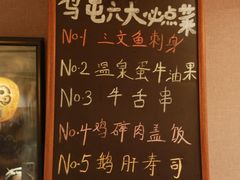 鸟屯六大必点菜
No·1 三文鱼刺身
No·2 温泉蛋牛油果
No·3 牛舌串
No·4 鸡碎肉盖饭
No·5 鹅肝寿司